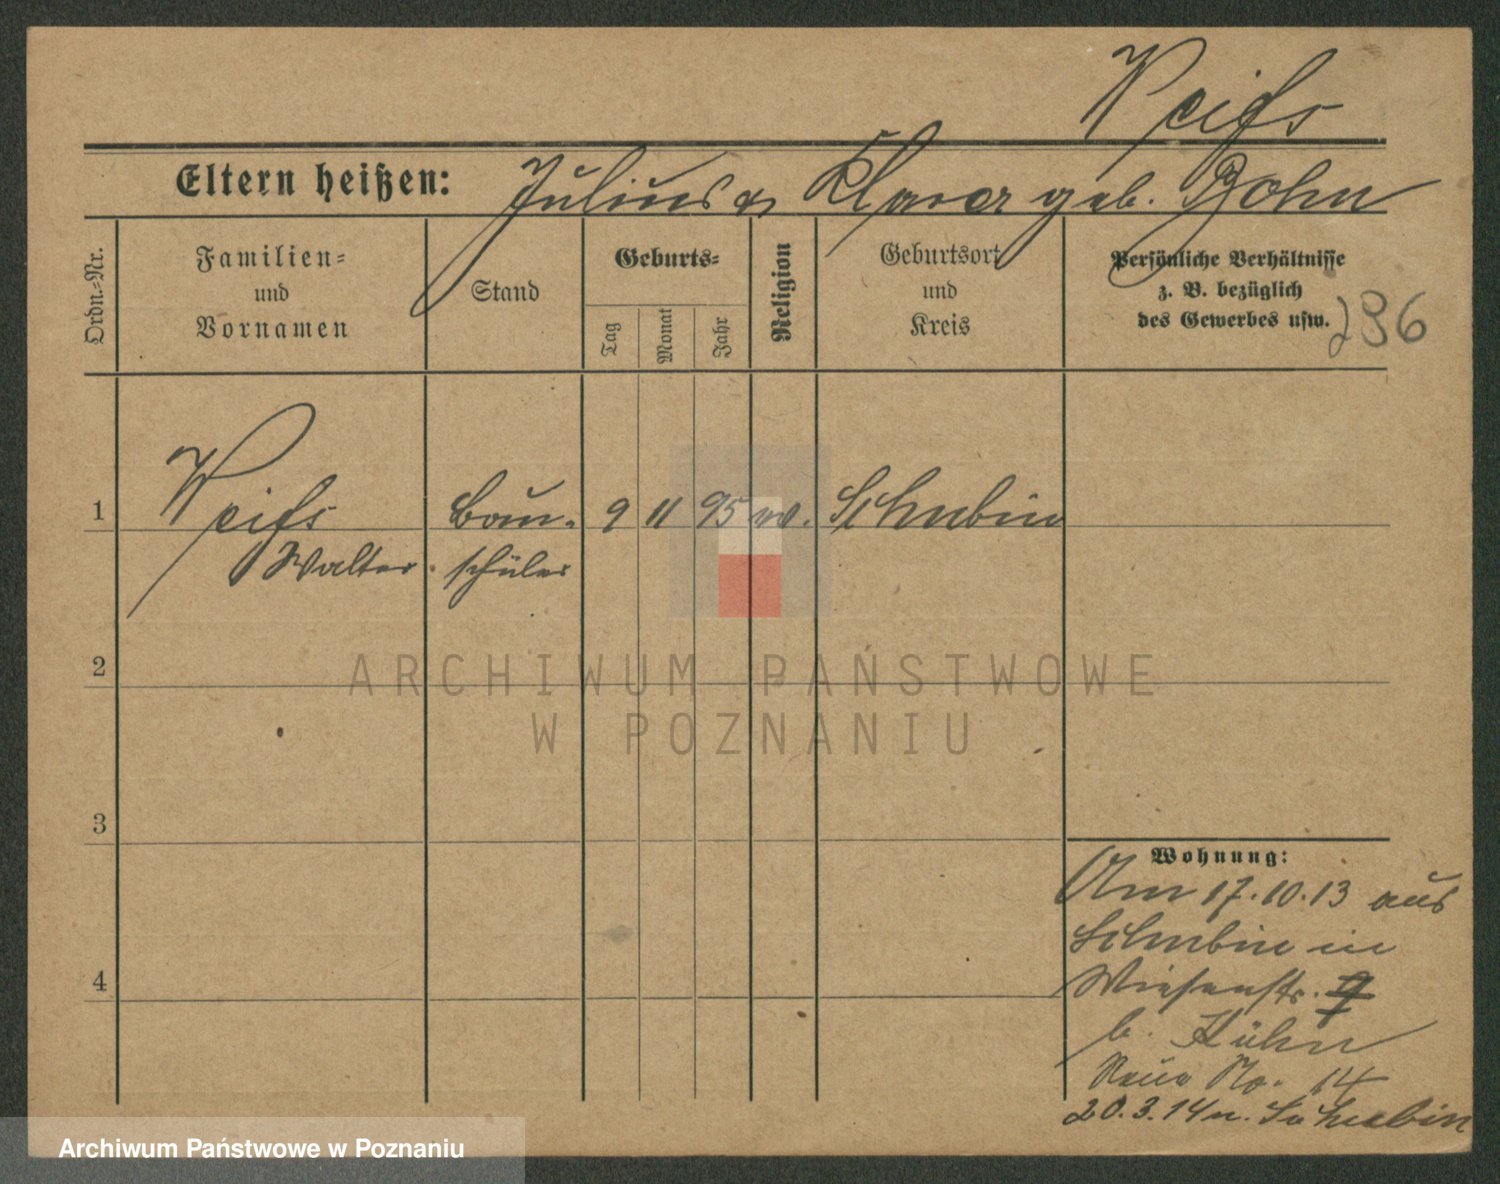 Weiß
Eltern heißen: Julius u Klara geb. Bohn
Ordn.-Nr.
Familien- und Vornamen
Stand
Geburts-
Tag
Monat
Jahr
Religion
Geburtsort und Kreis
Persönliche Verhältnisse
z. B. bezüglich
des Gewerbes usw.
296
1 Weiß Bau- 9 11 95 Schubin
Walter schüler
2
3
4
Wohnung:
Am 17.10.13 aus
Schubin in
Wiesenstr. 9
b. Kühn
Neue No. 14
20.3.14 n. Schubin
ARCHIWUM PAŃSTWOWE
W POZNANIU
Archiwum Państwowe w Poznaniu